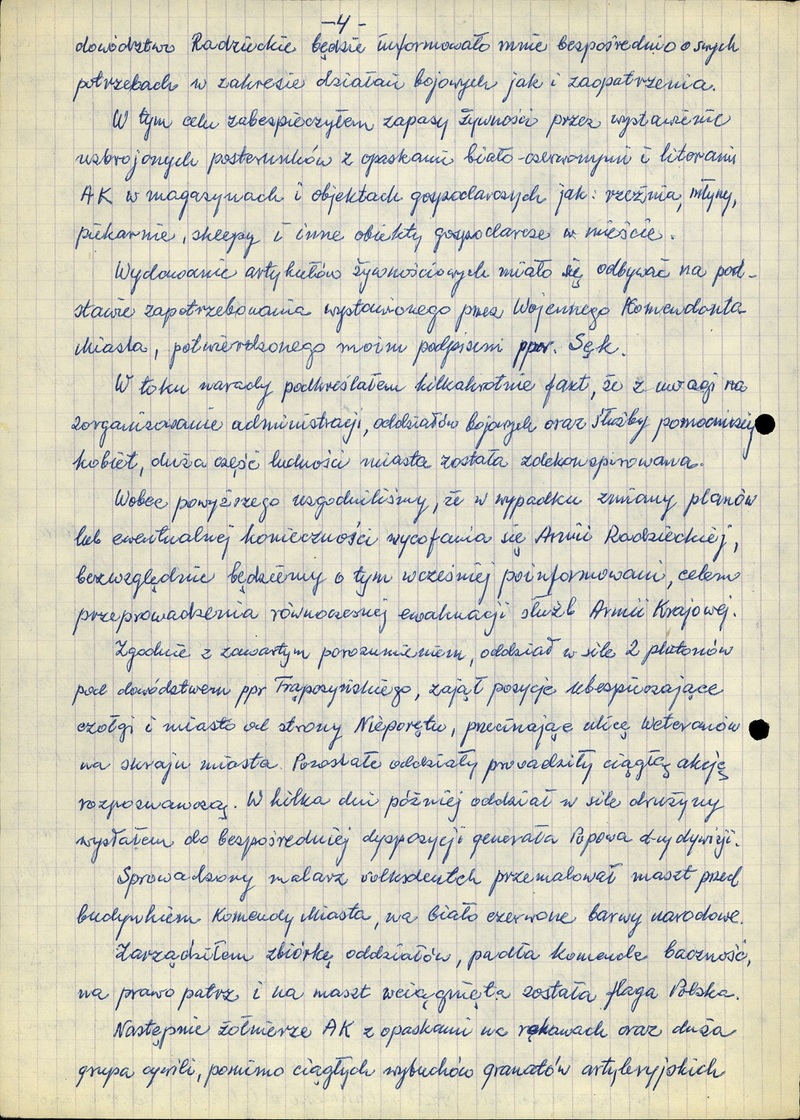 -4-
dowództwo Radzieckie będzie informowało mnie bezpośrednio o swych
potrzebach w zakresie działań bojowych jak i zaopatrzenia.
W tym celu zabezpieczyłem zapasy żywności przez wystawienie
uzbrojonych posterunków z opaskami biało-czerwonymi i literami
AK w magazynach i objektach gospodarczych jak: rzeźnia, młyny,
piekarnie, sklepy i inne obiekty gospodarcze w mieście.
Wydawanie artykułów żywnościowych miało się odbywać na pod-
stawie zapotrzebowania wystawionego przez Wojennego Komendanta
Miasta, potwierdzonego moim podpisem ppor. Sęk.
W toku narady podkreślałem kilkakrotnie fakt, że z uwagi na
zorganizowanie administracji, oddziałów bojowych oraz służby pomocniczej
kobiet, duża część ludności miasta została zdekonspirowana.
Wobec powyższego uzgodniliśmy, że w wypadku zmiany planów
lub ewentualnej konieczności wycofania się Armii Radzieckiej,
bezwzględnie będziemy o tym wcześniej poinformowani, celem
przeprowadzenia równoczesnej ewakuacji służb Armii Krajowej.
Zgodnie z zawartym porozumieniem, oddział w sile 2 plutonów
pod dowództwem ppr Trąpczyńskiego, zajął pozycje ubezpieczające
czołgi i miasto od strony Nieporętu, przecinając ulicę Weteranów
na skraju miasta. Pozostałe oddziały prowadziły ciągłą akcję
rozpoznawczą. W kilka dni później oddział w sile drużyny
wysłałem do bezpośredniej dyspozycji generała Popowa d-cy dywizji.
Sprowadzony malarz volksdeutch przemalował maszt przed
budynkiem Komendy Miasta, na biało czerwone barwy narodowe.
Zarządziłem zbiórkę oddziałów, padła komenda baczność,
na prawo patrz i na maszt wciągnięta została flaga Polska.
Następnie żołnierze AK z opaskami na rękawach oraz duża
grupa cywili, pomimo ciągłych wybuchów granatów artyleryjskich